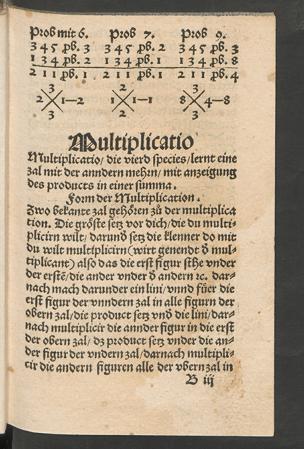 Prob mit 6. Prob 7. Prob 9.
3 4 5 pb. 3 3 4 5 pb. 2 3 4 5 pb. 3
1 3 4 pb. 2 1 3 4 pb. 1 1 3 4 pb. 8
2 1 1 pb. 1 2 1 1 pb. 1 2 1 1 pb. 4
3 2 3
2 1—2 1 1—1 8 4—8
3 2 3
Multiplicatio
Multiplicatio/ die vierd species/ lernt eine
zal mit der anndern mehrn/ mit anzeigung
des products in einer summa.
Form der Multiplication.
Zwo bekante zal gehören zů der multiplica
tion. Die gröste setz vor dich/ die du multi-
plicirn wilt/ darund̄ setz die klenner do mit
du wilt multiplicirn (wirt genendt d̄ mul-
tiplicant) also das die erst figur sthe vnder
der erstē/ die ander vnder d̄ andern ꝛc. dar-
nach mach darunder ein lini/ vnnd für die
erst figur der vnndern zal in alle figurn der
obern zal/ die product setz vnd̄ die lini/ dar-
nach multiplicir die annder figur in die erst
der obern zal/ dz product setz vnder die an-
der figur der vndern zal/ darnach multipli-
cir die andern figuren alle der vbern zal in
B iij